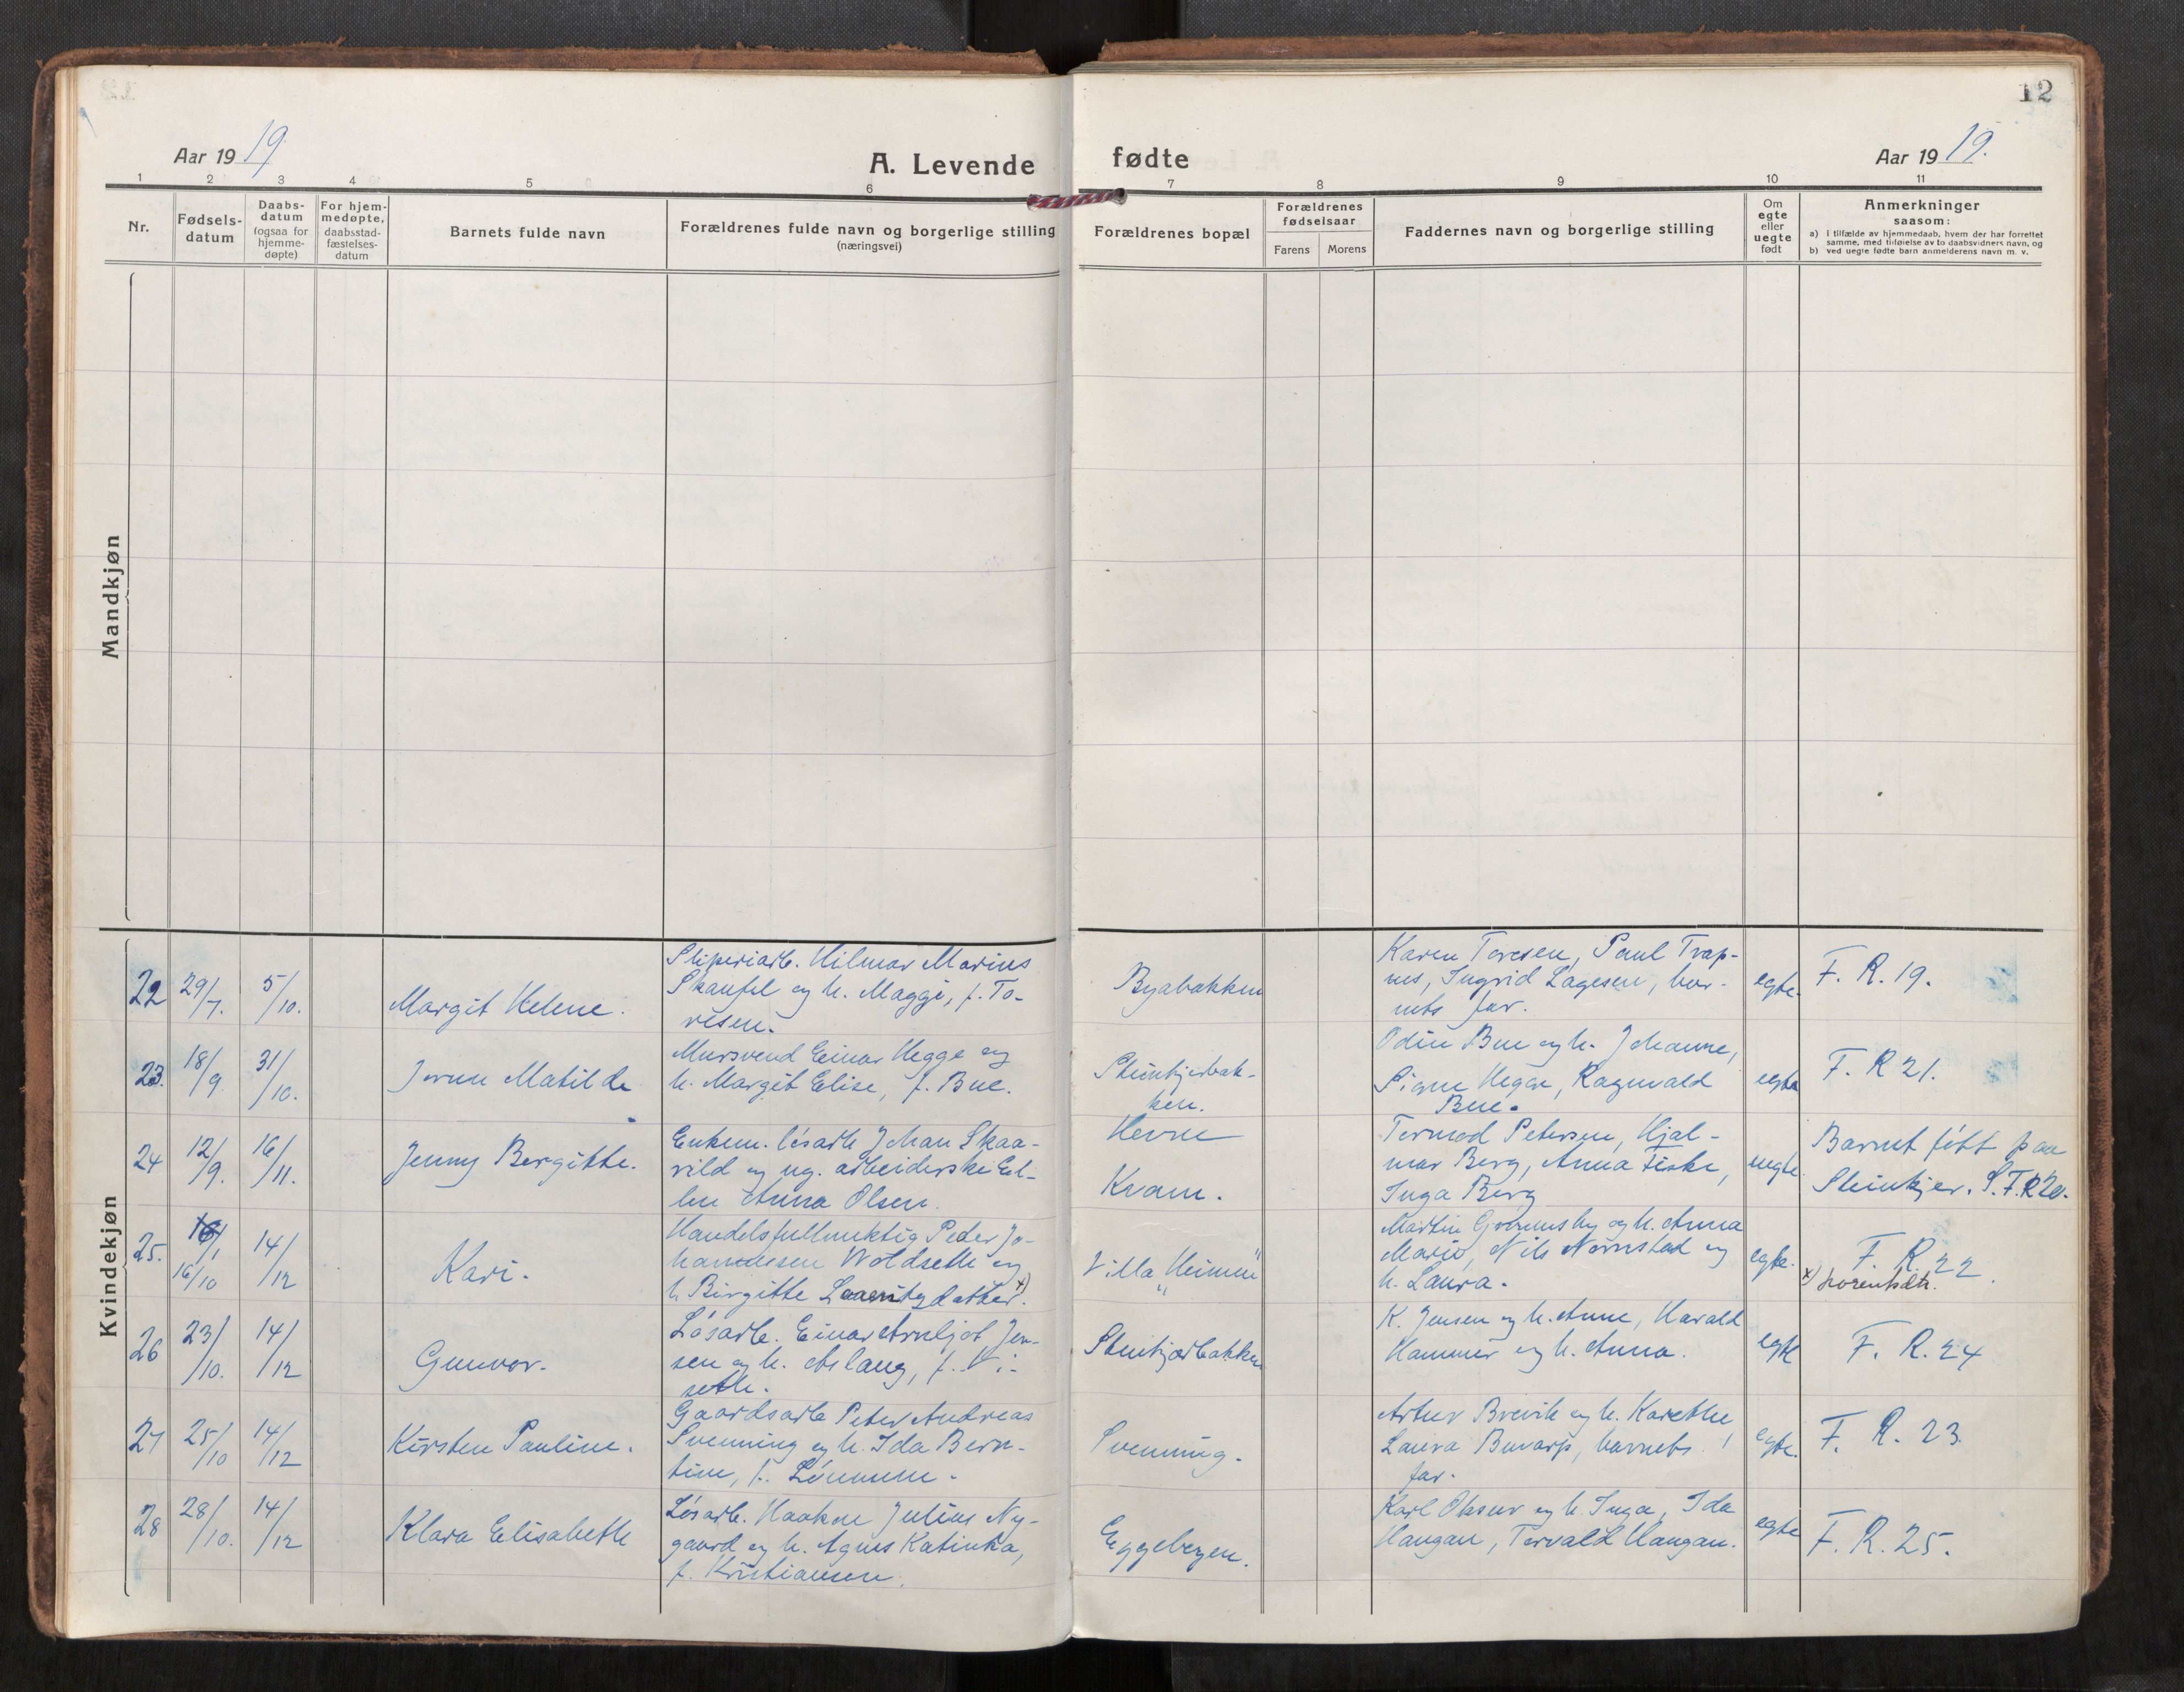 12
Aar 1919.
A. Levende fødte
Aar 1919.
1 2 3 4 5 6 7 8 9 10 11
Nr.
Fødsels-
datum
Daabs-
datum
(ogsaa for
hjemme-
døpte)
For hjem-
medøpte,
daabsstad-
fæstelses-
datum
Barnets fulde navn
Forældrenes fulde navn og borgerlige stilling
(næringsvei)
Forældrenes bopæl
Forældrenes
fødselsaar
Farens
Morens
Faddernes navn og borgerlige stilling
Om
egte
eller
uegte
født
Anmerkninger
saasom:
a) i tilfælde av hjemmedaab, hvem der har forrettet
samme, med tilføielse av to daabsvidners navn, og
b) ved uegte fødte barn anmelderens navn m. v.
Mandkjøn
Kvindekjøn
22 29/7. 5/10.
Margit Helene.
Sliperiarb. Hilmar Marius
Skaufel og h. Maggi, f. To-
resen.
Byabakken
Karen Toresen, Paul Trap-
nes, Ingrid Lagesen, bar-
nets far.
egte.
F. R. 19.
23. 18/9. 31/10.
Jorun Matilde
Mursvend Einar Hegge og
h. Margit Elise, f. Bue.
Steinkjerbak-
ken.
Odin Bue og h. Johanne,
Signe Hegge, Ragnvald
Bue.
egte
F. R 21.
24 12/9. 16/11.
Jenny Bergitte.
Enkem. løsarb Johan Skaa-
rild og ug. arbeiderske El-
len Anna Olsen.
Hevne
Kvam.
Tormod Petersen, Hjal-
mar Berg, Anna Fiske,
Inga Berg
uegte.
Barnet født paa
Steinkjer. S.F.R 20.
25. 16/10 14/12
Kari.
Handelsfullmektig Peder Jo-
hannesen Woldseth og
h Birgitte Lauritsdatter. x)
Villa "Heimen"
Martin Grønnsby og h. Anna
Marie, Nils Normstad og
h. Laura.
egte.
F. R. 22.
x) Lorentsdtr.
26 23/10. 14/12
Gunvor.
Løsarb. Einar Arnljot Jen-
sen og h. Aslaug, f. Vi-
seth.
Steinkjærbakken
K. Jensen og h. Anne, Harald
Hammer og h. Anna.
egte
F. R. 24
27 25/10 14/12
Kirsten Pauline.
Gaardsarb Peter Andreas
Svenning og h. Ida Bern-
tine, f. Lønnum.
Svenning.
Artur Brevik og h. Karethe
Laura Buvarp, barnets
far.
egte.
F. R. 23.
28 28/10. 14/12
Klara Elisabeth
Løsarb. Haakon Julius Ny-
gaard og h. Agnes Katinka,
f. Kristiansen.
Eggebogen.
Karl Olsen og h. Inga, Ida
Haugan, Torvald Haugan.
egte
F. R. 25.